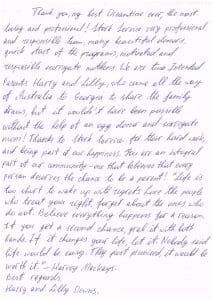 Thank you, my best Dreamtime ever, the most
loving and professional! Stork Service very professional
and responsible team, many beautiful donors,
quick start of the programs, motivated and
responsible surrogate mothers. We are two Intended
Parents Harry and Lilly, who came all the way
of Australia to Georgia to share the family
draws, but it wouldn't have been possible
without the help of an egg donor and surrogate
mom! Thanks to Stork Service for their hard work,
and being part of our happiness. You are an integral
part of our community - one that believes that every
person deserves the chance to be a parent! "Life is
too short to wake up with regrets. Love the people
who treat you right, forget about the ones who
do not. Believe everything happens for a reason.
If you get a second chance, grab it with both
hands. If it changes your life, let it. Nobody said
life would be easy. They just promised it would be
worth it." - Harvey Mackay.
Best regards,
Harry and Lilly Downs.